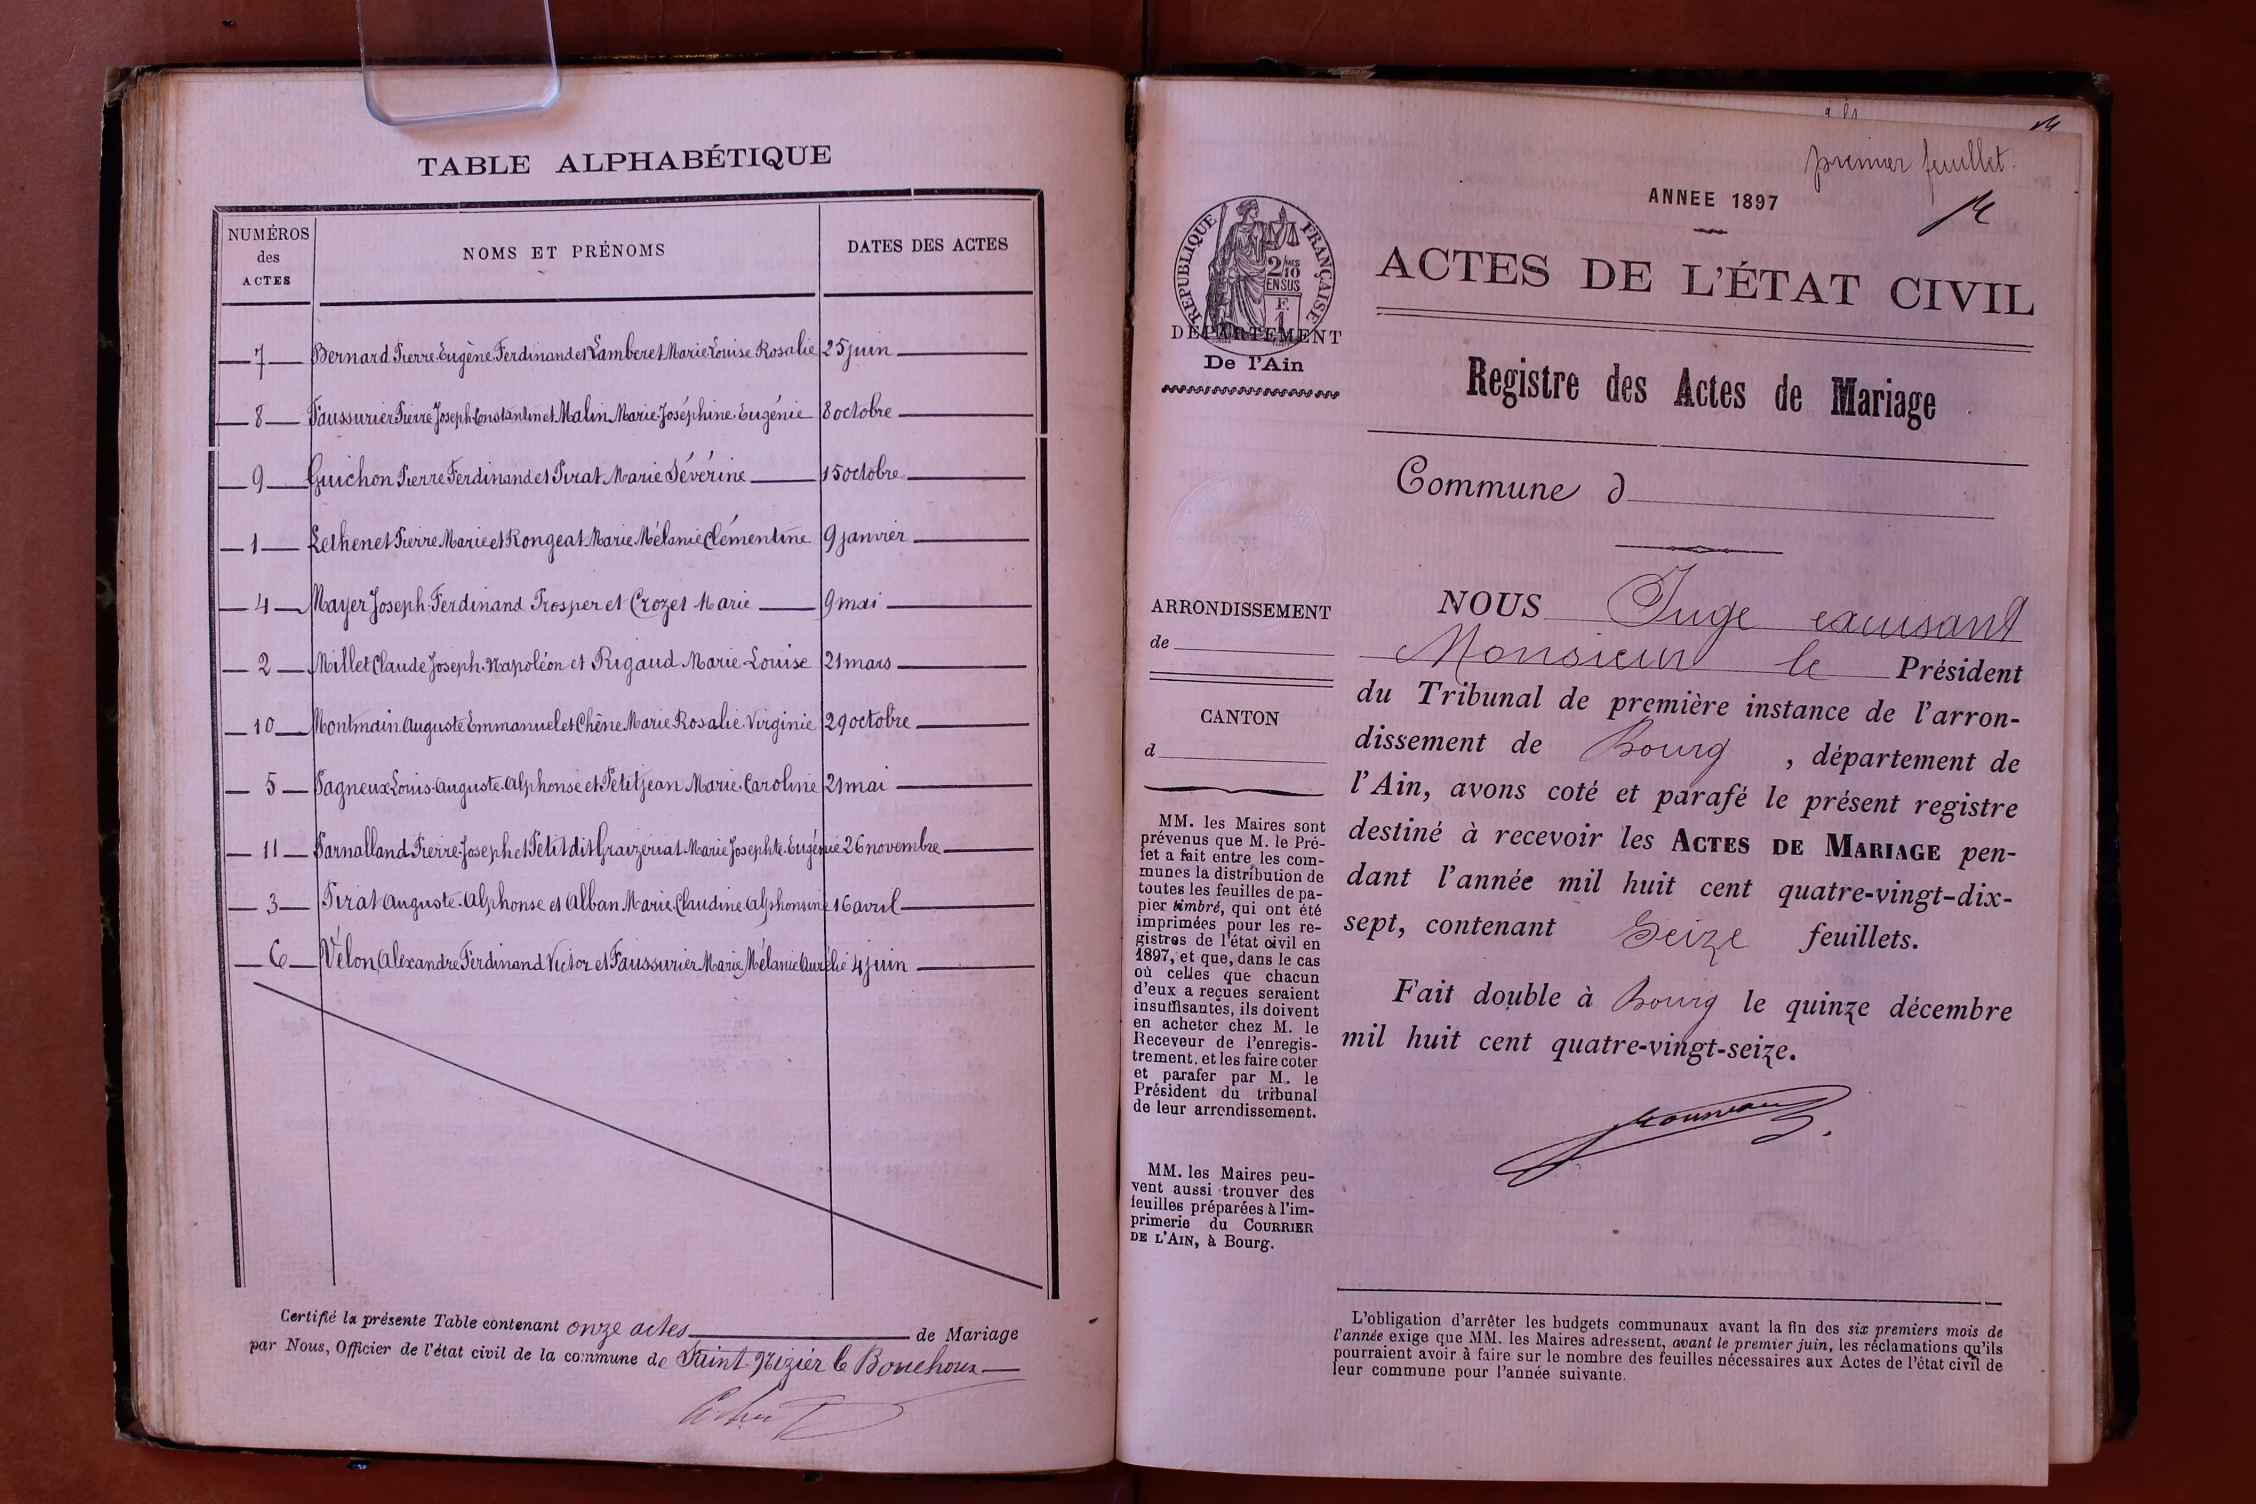 TABLE ALPHABÉTIQUE
NUMÉROS des ACTES
NOMS ET PRÉNOMS
DATES DES ACTES
7 Bernard Pierre Eugène Ferdinand et Lamberet Marie Louise Rosalie 25 juin
8 Faussurier Pierre Joseph Constantin et Malin Marie Joséphine Eugénie 8 octobre
9 Guichon Pierre Ferdinand et Pirat Marie Sévérine 15 octobre
1 Lethenet Pierre Marie et Rongeat Marie Mélanie Clémentine 9 janvier
4 Mayer Joseph Ferdinand Prosper et Crozet Marie 9 mai
2 Millet Claude Joseph Napoléon et Rigaud Marie Louise 21 mars
10 Montmain Auguste Emmanuel et Chêne Marie Rosalie Virginie 29 octobre
5 Pagneux Louis Auguste Alphonse et Petitjean Marie Caroline 21 mai
11 Parnalland Pierre Joseph et Petit dit Marie Josephte Eugénie 26 novembre
3 Pirat Auguste Alphonse et Alban Marie Claudine Alphonsine 16 avril
6 Vélon Alexandre Ferdinand Victor et Faussurier Marie Mélanie Aurélie 4 juin
Certifié la présente Table contenant onze actes de Mariage
par Nous, Officier de l'état civil de la commune de Saint Nizier le Bouchoux
premier feuillet.
ANNEE 1897
RÉPUBLIQUE FRANÇAISE
2/10 EN SUS
F. 1
DÉPARTEMENT
De l'Ain
ACTES DE L'ÉTAT CIVIL
Registre des Actes de Mariage
Commune d
ARRONDISSEMENT
de
CANTON
d
MM. les Maires sont
prévenus que M. le Pré-
fet a fait entre les com-
munes la distribution de
toutes les feuilles de pa-
pier timbré, qui ont été
imprimées pour les re-
gistres de l'état civil en
1897, et que, dans le cas
où celles que chacun
d'eux a reçues seraient
insuffisantes, ils doivent
en acheter chez M. le
Receveur de l'enregis-
trement, et les faire coter
et parafer par M. le
Président du tribunal
de leur arrondissement.
MM. les Maires peu-
vent aussi trouver des
feuilles préparées à l'im-
primerie du COURRIER
DE L'AIN, à Bourg.
NOUS Juge excusant
Monsieur le Président
du Tribunal de première instance de l'arron-
dissement de Bourg, département de
l'Ain, avons coté et parafé le présent registre
destiné à recevoir les ACTES DE MARIAGE pen-
dant l'année mil huit cent quatre-vingt-dix-
sept, contenant Seize feuillets.
Fait double à Bourg le quinze décembre
mil huit cent quatre-vingt-seize.
L'obligation d'arrêter les budgets communaux avant la fin des six premiers mois de
l'année exige que MM. les Maires adressent, avant le premier juin, les réclamations qu'ils
pourraient avoir à faire sur le nombre des feuilles nécessaires aux Actes de l'état civil de
leur commune pour l'année suivante.